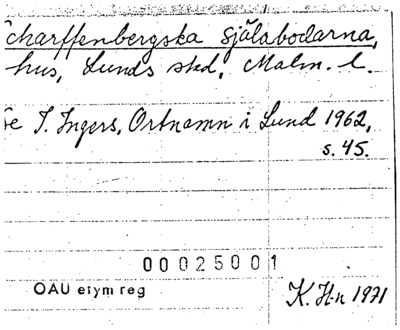 Scharffenbergska själabodarna,
hus, Lunds stad, Malm. l.
Se I. Ingers, Ortnamn i Lund 1962,
s. 45.
00025001
OAU etym reg
K. H-n 1971